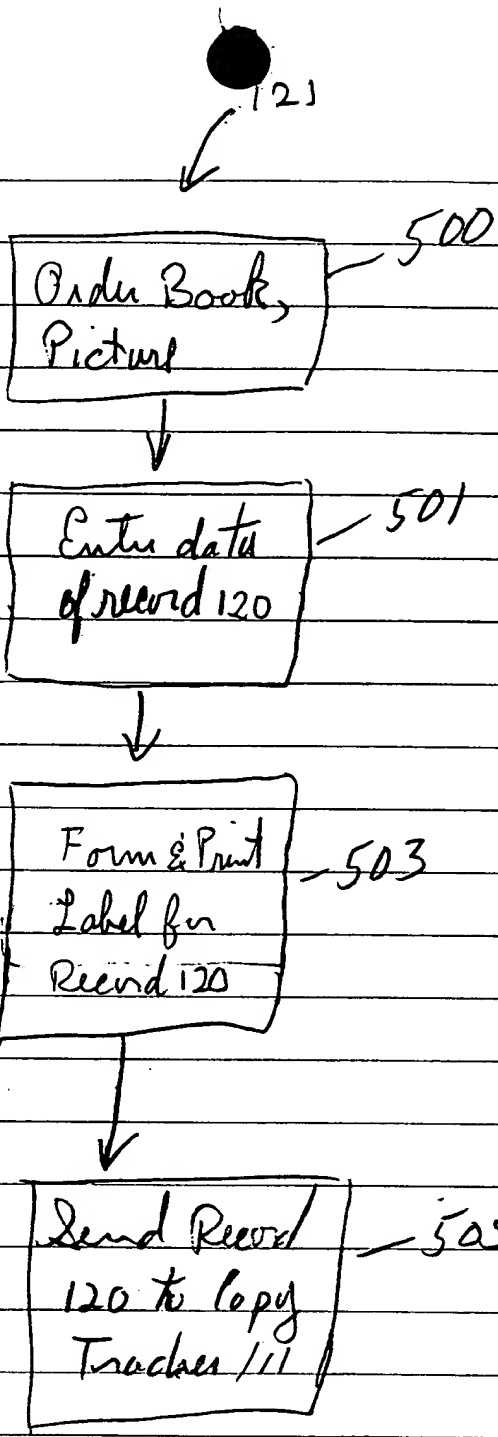 121
500
Order Book,
Picture
501
Enter data
of record 120
Form & Print
503
Label for
Record 120
Send Record
120 to Copy
Tracker 111